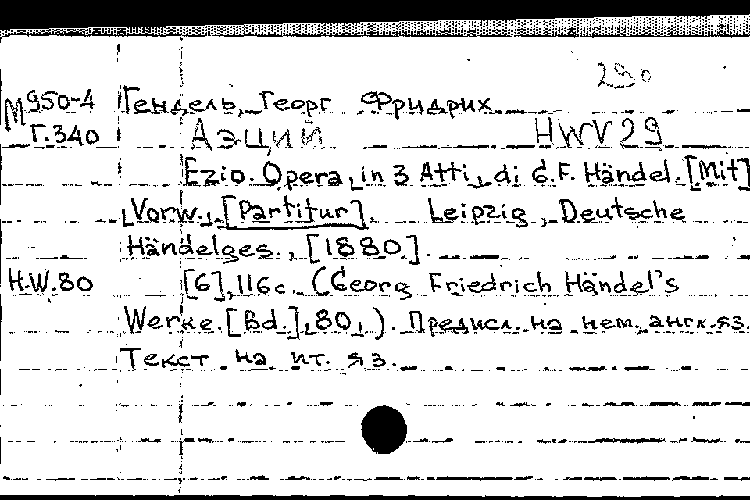 290
М950-4 Гендель, Георг Фридрих
Г.340 Аэций HWV 29
Ezio. Opera, in 3 Atti, di G.F. Händel. [Mit]
Vorw., [Partitur]. Leipzig, Deutsche
Händelges., [1880].
H.W.80 [6], 116 c. (Georg Friedrich Händel's
Werke. [Bd.], 80,). Предисл. на нем. англ. яз.
Текст на ит. яз.